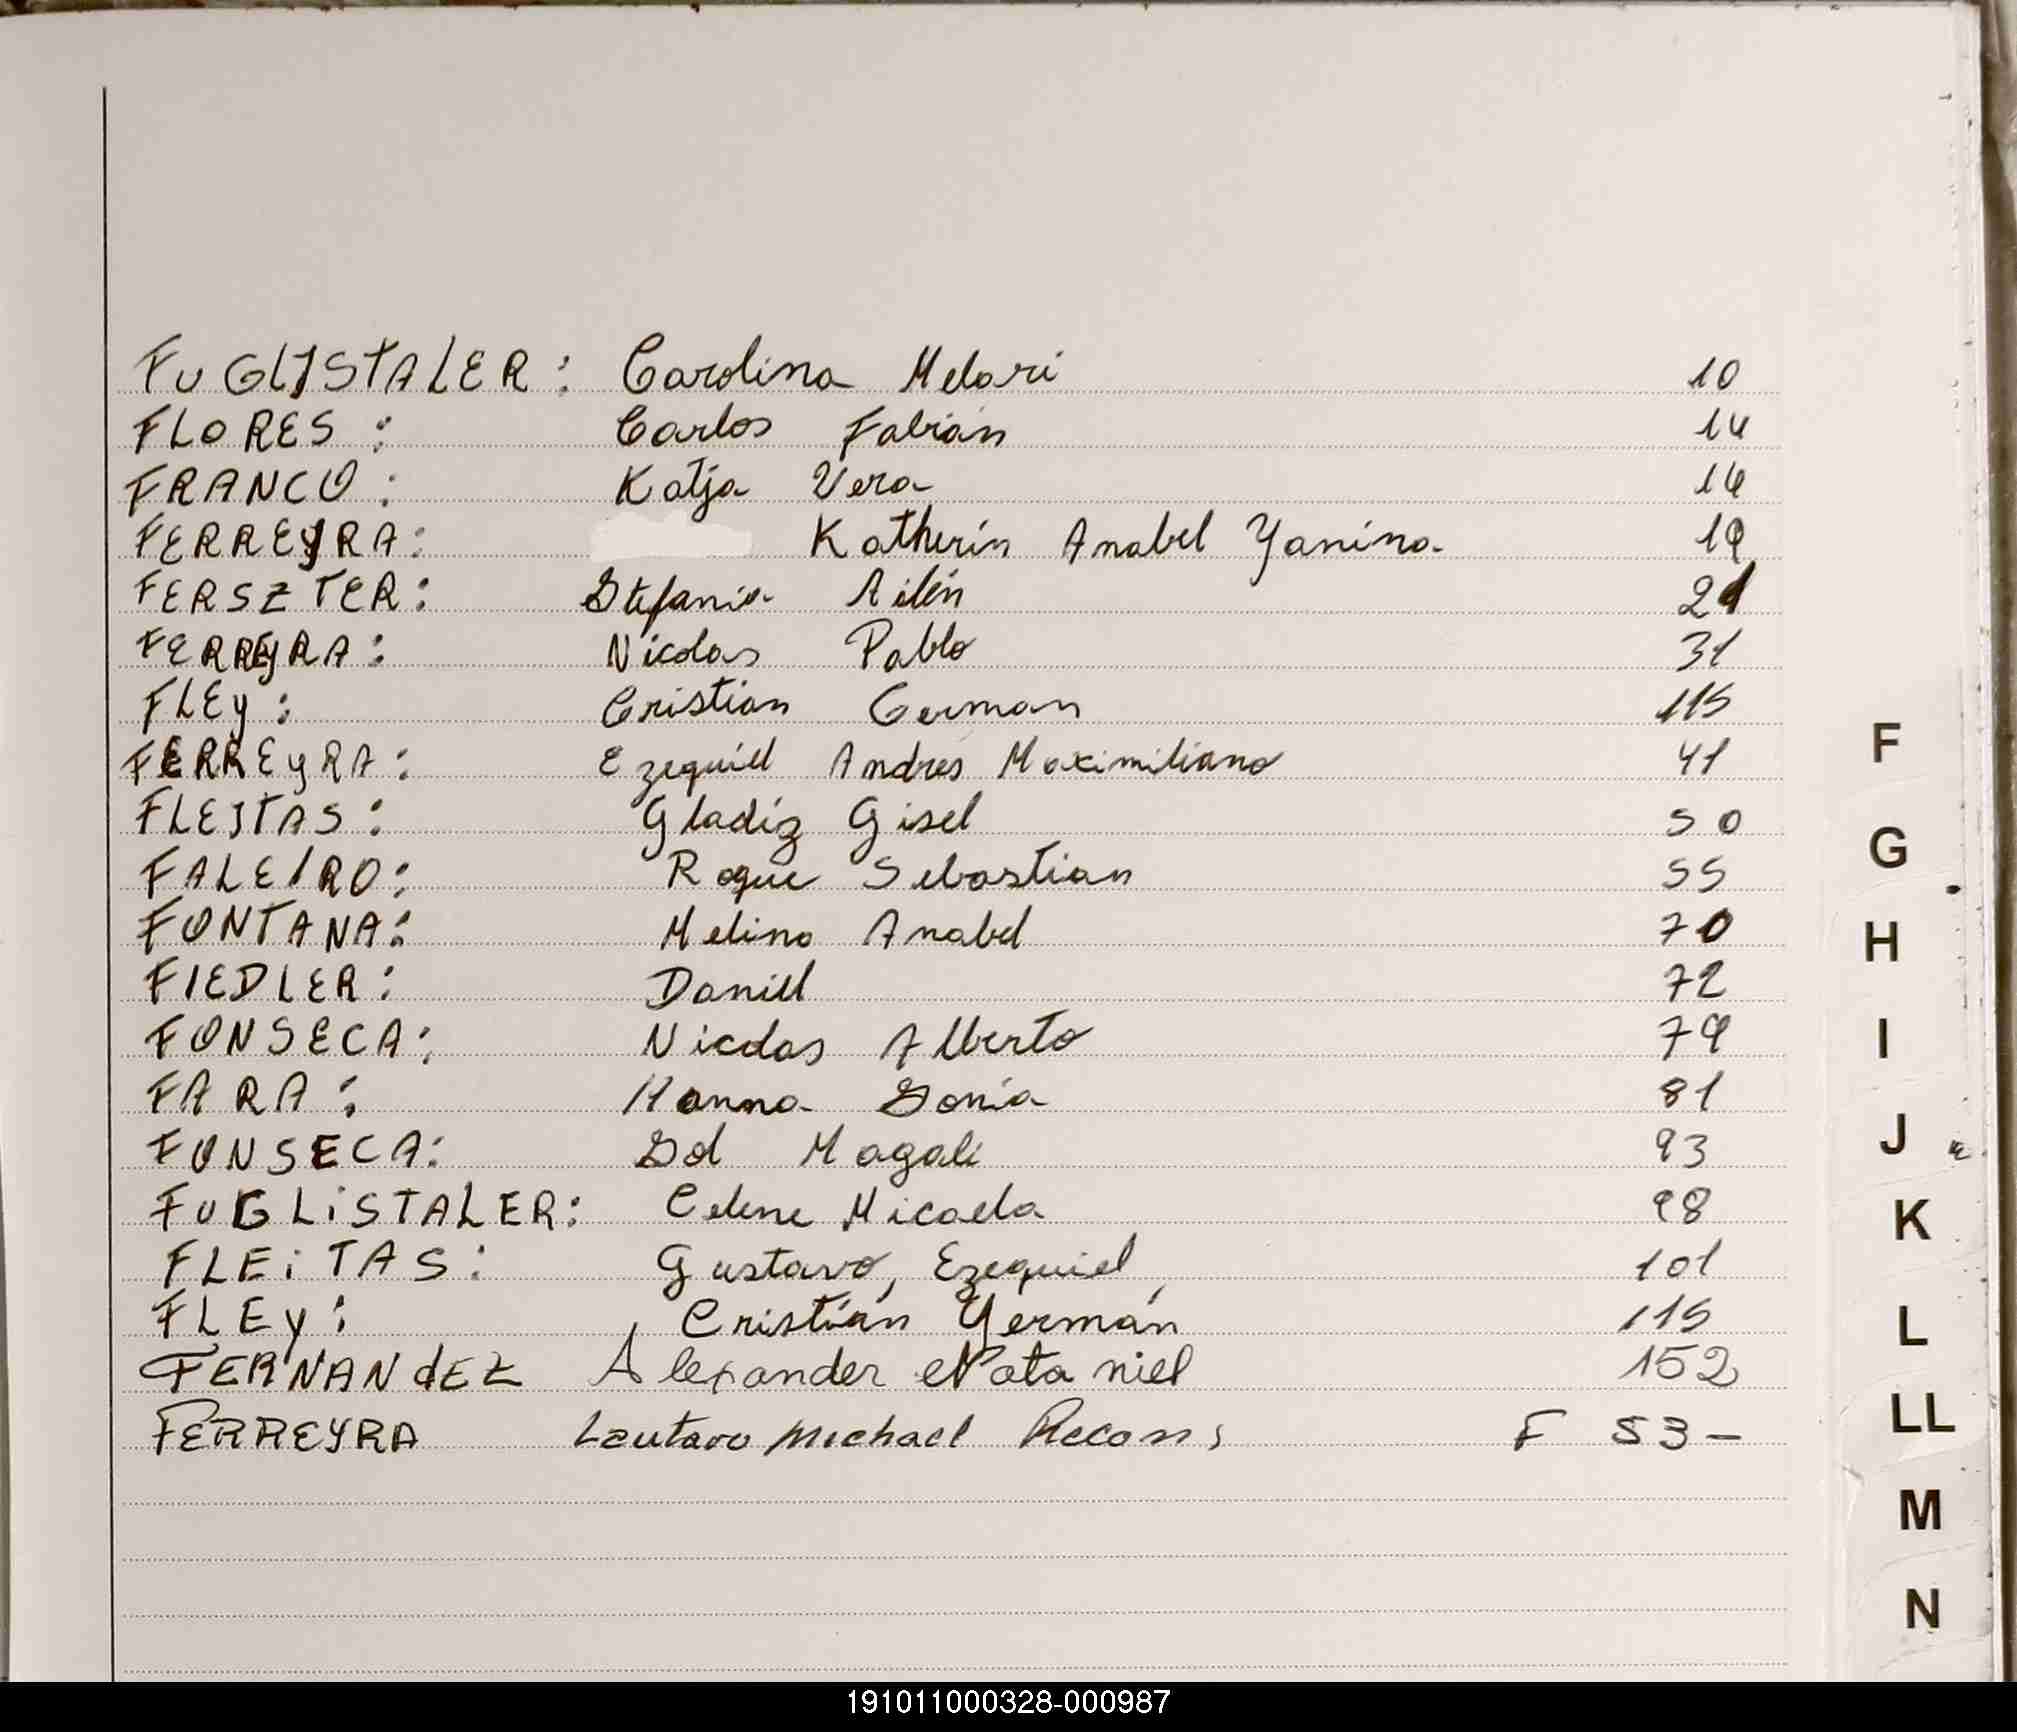 FUGLISTALER: Carolina Melari 10
FLORES: Carlos Fabián 14
FRANCO: Katja Vera 16
FERREYRA: Katherin Anabel Yanina 19
FERSZTER: Stefania Ailén 21
FERREYRA: Nicolas Pablo 31
FLEy: Cristian German 115
FERREyRA: Ezequiel Andrés Maximiliano 41
FLEITAS: Gladiz Gisel 50
FALEIRO: Roque Sebastian 55
FONTANA: Melina Anabel 70
FIEDLER: Daniel 72
FONSECA: Nicolas Alberto 79
FARA: Hanna Sonia 81
FONSECA: Sol Magali 93
FUGLiSTALER: Celene Micaela 98
FLEiTAS: Gustavo, Ezequiel 101
FLEy: Cristián Germán 115
FERNANdEZ Alexander Nataniel 152
FERREYRA Lautaro Michael F 53-
F
G
H
I
J
K
L
LL
M
N
191011000328-000987